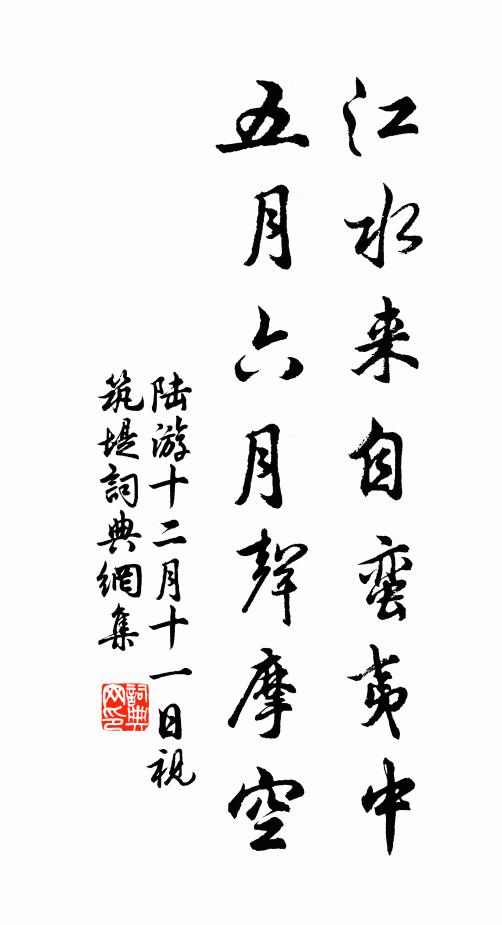 江水来自蛮夷中
五月六月聲摩空
陆游十二月十一日视
筑堤詞典網集
詞典网印